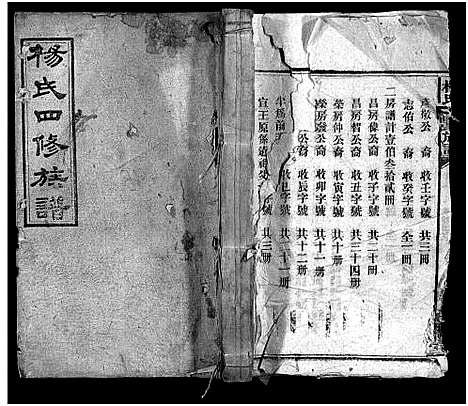 楊氏四修族譜
彥敬公裔 收壬字號 共三冊
志伯公裔 收癸字號 全一冊
二房譜計壹佰叁拾貳冊
昌房傑公裔 收子字號 共二十冊
昌房哲公裔 收丑字號 共三十四冊
榮房仲公裔 收寅字號 共十冊
公裔 收卯字號 共十一冊
公裔 收辰字號 共十二冊
收巳字號 共二十一冊
宣王原係 字號 共三冊